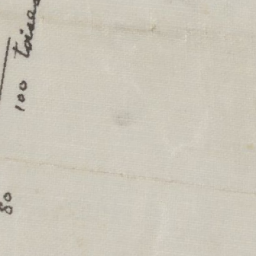 80
100 toises